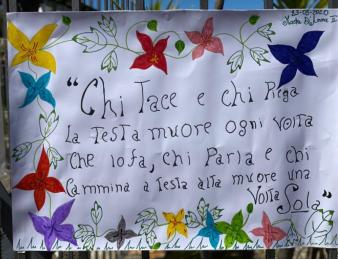 “Chi Tace e chi Piega
la Testa muore ogni volta
Che lo fa, chi Parla e chi
Cammina a testa alta muore una
Volta Sola”